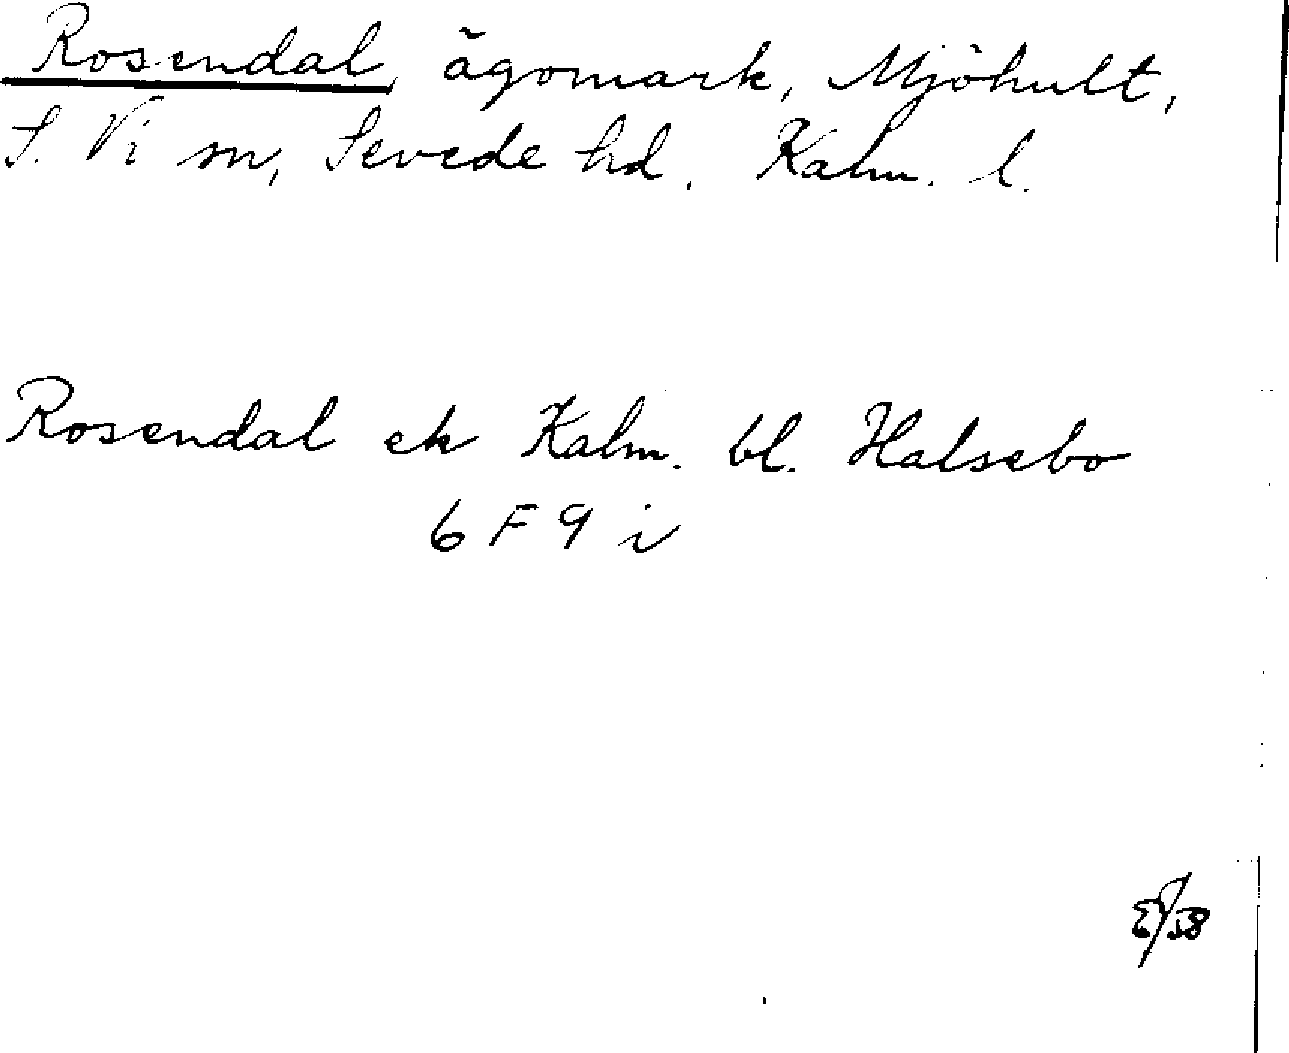 Rosendal, ägomark, Mjöhult,
S. Vi sn, Sevede hd. Kalm. l.
Rosendal ek Kalm. bl. Halsebo
6 F 9 i